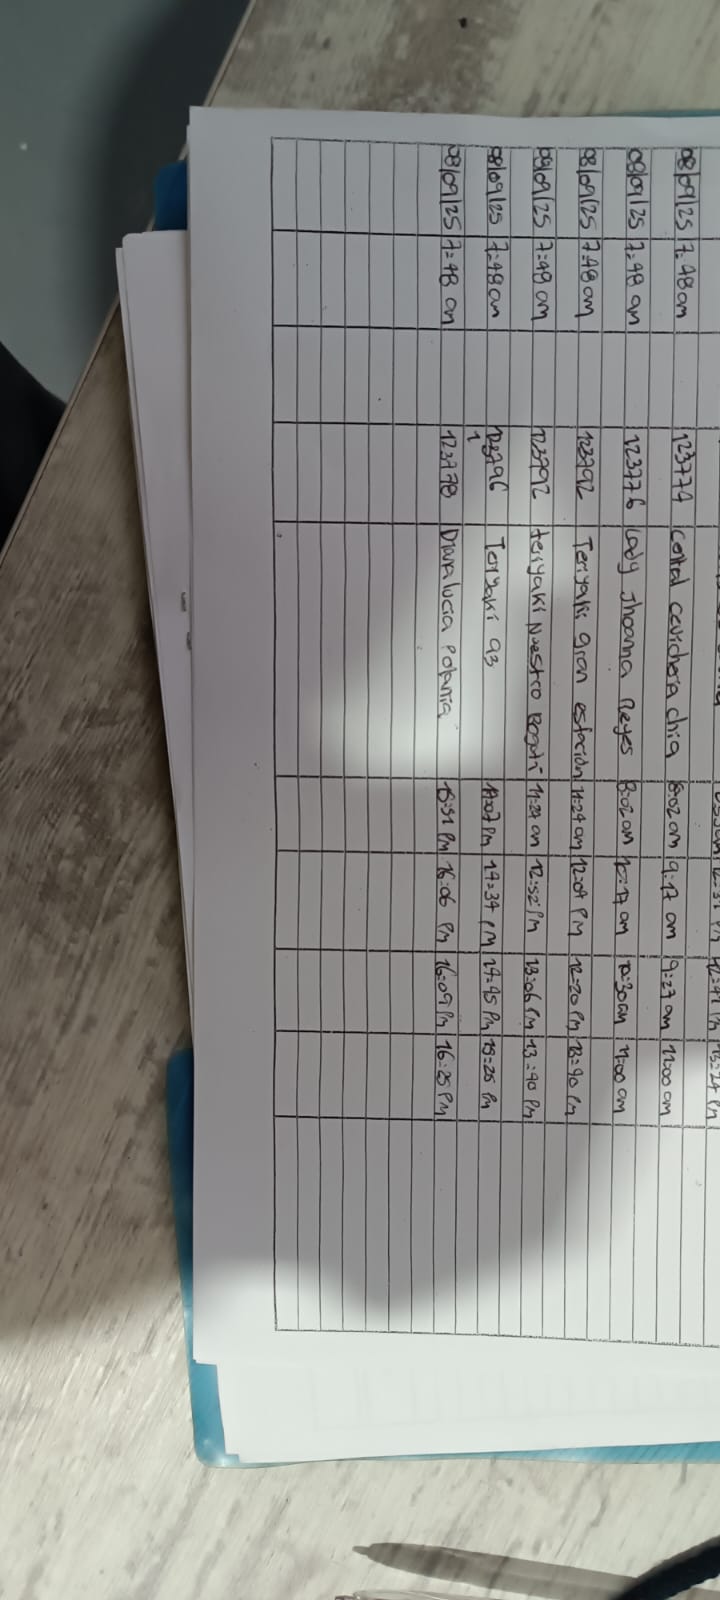 08/09/25 7:48 am 123774 central cevicheria chia 8:02 am 9:17 am 9:27 am 11:00 am
08/09/25 7:48 am 123776 Lady Jhoanna Reyes 8:02 am 10:17 am 10:30 am 11:00 am
08/09/25 7:48 am 123792 Teriyaki gran estación 11:24 am 12:04 PM 12:20 PM 13:40 PM
08/09/25 7:48 am 123792 teriyaki Nuestro Bogotá 11:24 am 12:52 PM 13:06 PM 13:40 PM
08/09/25 7:48 am Teriyaki 93 14:34 PM 14:45 PM 15:25 PM
08/09/25 7:48 am 123778 Diana lucia Polania 15:51 PM 16:06 PM 16:09 PM 16:25 PM